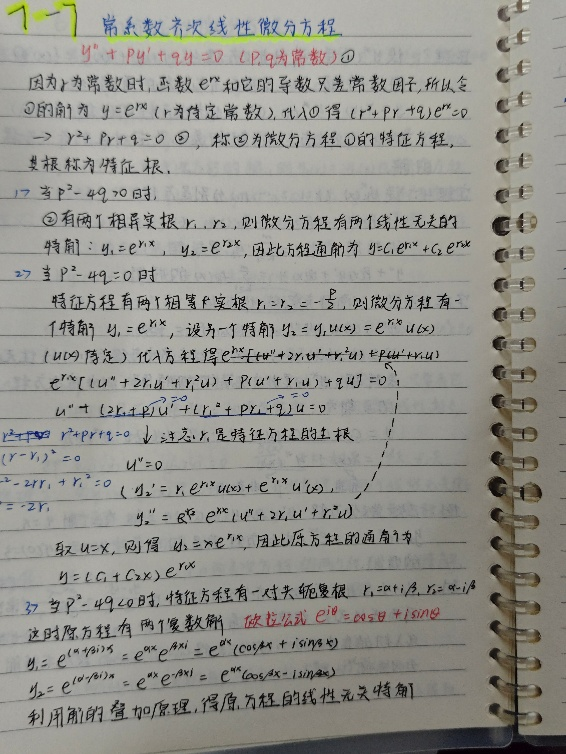 7-7 常系数齐次线性微分方程
y"+py'+qy=0 (p,q为常数)①
因为r为常数时,函数e^{rx}和它的导数只差常数因子,所以令
①的解为 y=e^{rx} (r为待定常数),代入①得 (r²+pr+q)e^{rx}=0
→ r²+pr+q=0 ②, 称②为微分方程①的特征方程,
其根称为特征根.
1> 当p²-4q>0时,
②有两个相异实根 r₁,r₂,则微分方程有两个线性无关的
特解: y₁=e^{r₁x}, y₂=e^{r₂x},因此方程通解为 y=C₁e^{r₁x}+C₂e^{r₂x}
2> 当p²-4q=0时
特征方程有两个相等实根 r₁=r₂=-p/2, 则微分方程有一
个特解 y₁=e^{r₁x},设另一个特解 y₂=y₁u(x)=e^{r₁x}u(x)
(u(x)待定) 代入方程得
e^{r₁x}[(u"+2r₁u'+r₁²u)+p(u'+r₁u)+qu]=0
u"+(2r₁+p)u'+(r₁²+pr₁+q)u=0
=0 =0
r²+pr+q=0 ↓注意r₁是特征方程的重根
(r-r₁)²=0
u"=0
-2rr₁+r₁²=0
(y₂'=r₁e^{r₁x}u(x)+e^{r₁x}u'(x),
=-2r₁
y₂"=e^{r₁x}(u"+2r₁u'+r₁²u)
取u=x, 则得 y₂=xe^{r₁x}, 因此原方程的通解为
y=(C₁+C₂x)e^{r₁x}
3> 当p²-4q<0时,特征方程有一对共轭复根 r₁=α+iβ, r₂=α-iβ
这时原方程有两个复数解 欧拉公式 e^{iθ}=cosθ+isinθ
y₁=e^{(α+βi)x}=e^{αx}e^{βxi}=e^{αx}(cosβx+isinβx)
y₂=e^{(α-βi)x}=e^{αx}e^{-βxi}=e^{αx}(cosβx-isinβx)
利用解的叠加原理,得原方程的线性无关特解